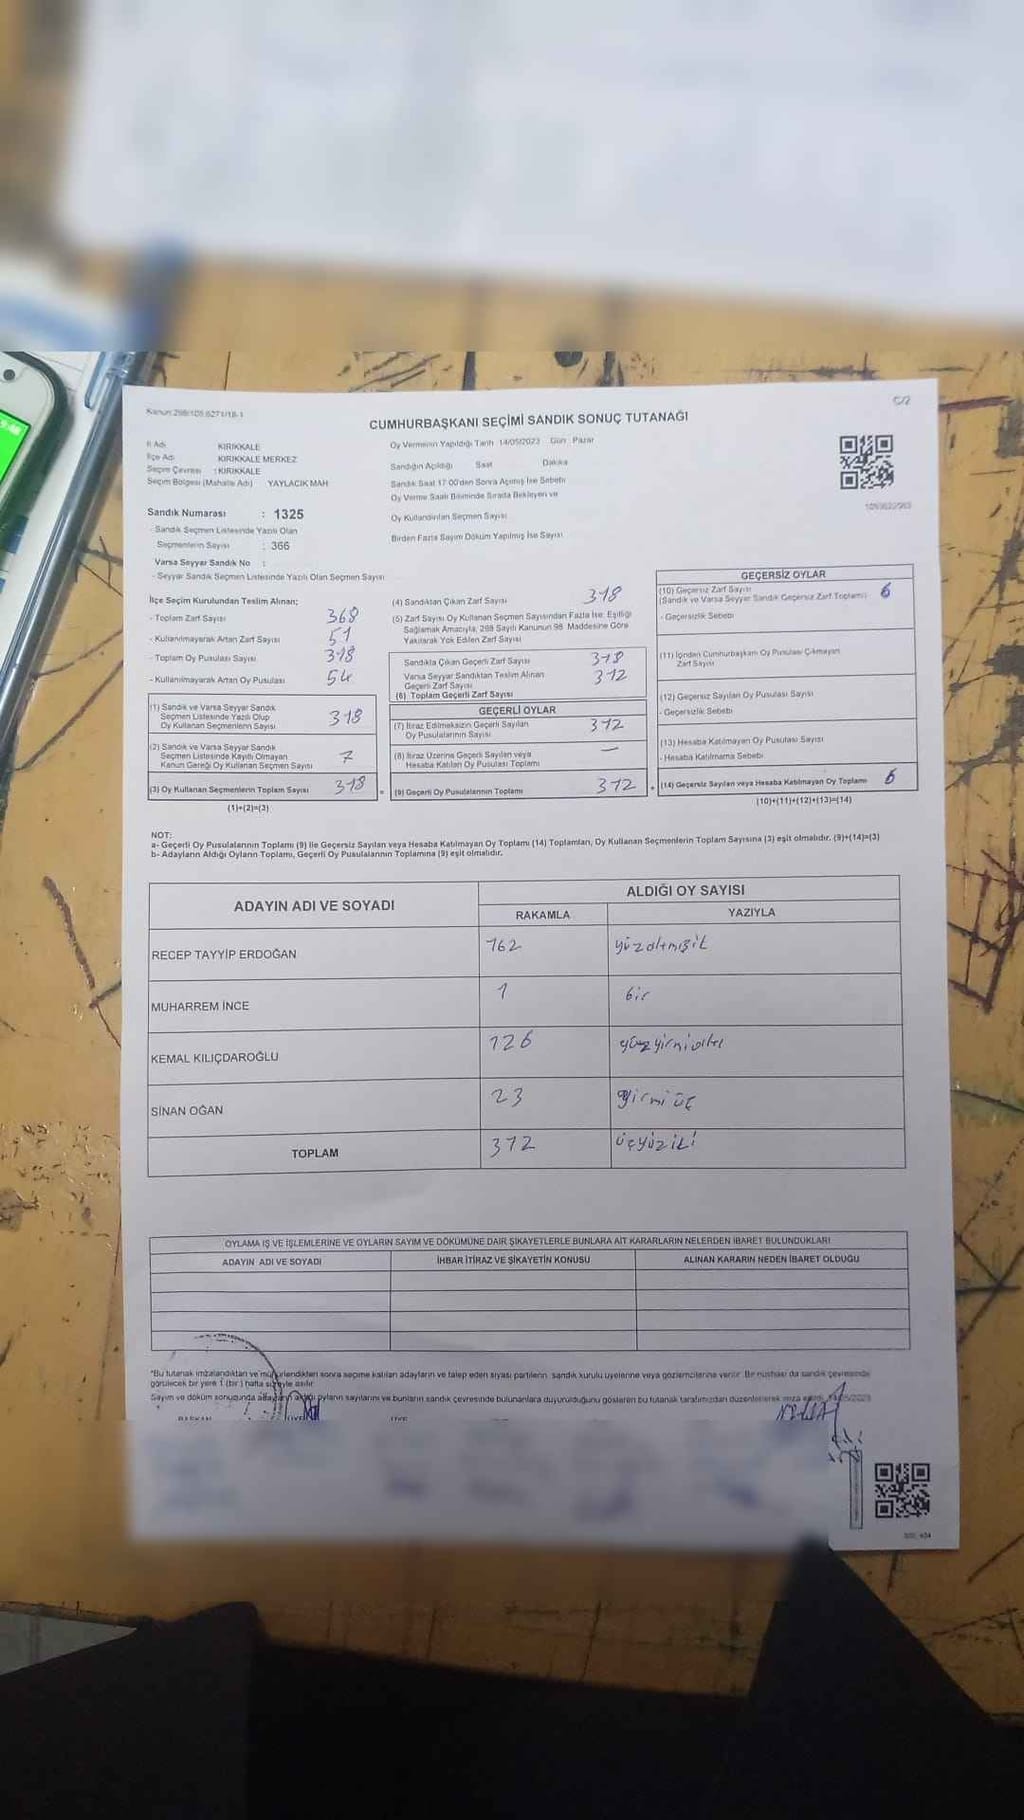 Kanun:298/105,6271/18-1
C/2
CUMHURBAŞKANI SEÇİMİ SANDIK SONUÇ TUTANAĞI
İl Adı KIRIKKALE
İlçe Adı KIRIKKALE MERKEZ
Seçim Çevresi : KIRIKKALE
Seçim Bölgesi (Mahalle Adı) YAYLACIK MAH
Oy Vermenin Yapıldığı Tarih 14/05/2023 Gün : Pazar
Sandığın Açıldığı Saat Dakika
Sandık Saat 17:00'den Sonra Açılmış İse Sebebi
Oy Verme Saati Bitiminde Sırada Bekleyen ve
Oy Kullandırılan Seçmen Sayısı
Birden Fazla Sayım Döküm Yapılmış İse Sayısı
Sandık Numarası : 1325
- Sandık Seçmen Listesinde Yazılı Olan
Seçmenlerin Sayısı : 366
Varsa Seyyar Sandık No :
- Seyyar Sandık Seçmen Listesinde Yazılı Olan Seçmen Sayısı
İlçe Seçim Kurulundan Teslim Alınan;
- Toplam Zarf Sayısı 368
- Kullanılmayarak Artan Zarf Sayısı 51
- Toplam Oy Pusulası Sayısı 318
- Kullanılmayarak Artan Oy Pusulası 54
(1) Sandık ve Varsa Seyyar Sandık
Seçmen Listesinde Yazılı Olup
Oy Kullanan Seçmenlerin Sayısı 318
(2) Sandık ve Varsa Seyyar Sandık
Seçmen Listesinde Kayıtlı Olmayan
Kanun Gereği Oy Kullanan Seçmen Sayısı
(3) Oy Kullanan Seçmenlerin Toplam Sayısı 318
(1)+(2)=(3)
(4) Sandıktan Çıkan Zarf Sayısı 318
(5) Zarf Sayısı Oy Kullanan Seçmen Sayısından Fazla İse; Eşitliği
Sağlamak Amacıyla, 298 Sayılı Kanunun 98. Maddesine Göre
Yakılarak Yok Edilen Zarf Sayısı
Sandıkla Çıkan Geçerli Zarf Sayısı 318
Varsa Seyyar Sandıktan Teslim Alınan
Geçerli Zarf Sayısı 312
(6) Toplam Geçerli Zarf Sayısı
GEÇERLİ OYLAR
(7) İtiraz Edilmeksizin Geçerli Sayılan
Oy Pusulalarının Sayısı 312
(8) İtiraz Üzerine Geçerli Sayılan veya
Hesaba Katılan Oy Pusulası Toplamı —
(9) Geçerli Oy Pusulalarının Toplamı 312
GEÇERSİZ OYLAR
(10) Geçersiz Zarf Sayısı
(Sandık ve Varsa Seyyar Sandık Geçersiz Zarf Toplamı) 6
- Geçersizlik Sebebi
(11) İçinden Cumhurbaşkanı Oy Pusulası Çıkmayan
Zarf Sayısı
(12) Geçersiz Sayılan Oy Pusulası Sayısı
- Geçersizlik Sebebi
(13) Hesaba Katılmayan Oy Pusulası Sayısı
- Hesaba Katılmama Sebebi
(14) Geçersiz Sayılan veya Hesaba Katılmayan Oy Toplamı 6
(10)+(11)+(12)+(13)=(14)
NOT:
a- Geçerli Oy Pusulalarının Toplamı (9) İle Geçersiz Sayılan veya Hesaba Katılmayan Oy Toplamı (14) Toplamları, Oy Kullanan Seçmenlerin Toplam Sayısına (3) eşit olmalıdır. (9)+(14)=(3)
b- Adayların Aldığı Oyların Toplamı, Geçerli Oy Pusulalarının Toplamına (9) eşit olmalıdır.
ADAYIN ADI VE SOYADI
ALDIĞI OY SAYISI
RAKAMLA YAZIYLA
RECEP TAYYİP ERDOĞAN 162
MUHARREM İNCE 1 bir
KEMAL KILIÇDAROĞLU 126
SİNAN OĞAN 23 yirmi üç
TOPLAM 312
OYLAMA İŞ VE İŞLEMLERİNE VE OYLARIN SAYIM VE DÖKÜMÜNE DAİR ŞİKAYETLERLE BUNLARA AİT KARARLARIN NELERDEN İBARET BULUNDUKLARI
ADAYIN ADI VE SOYADI İHBAR İTİRAZ VE ŞİKAYETİN KONUSU ALINAN KARARIN NEDEN İBARET OLDUĞU
"Bu tutanak imzalandıktan ve mühürlendikten sonra seçime katılan adayların ve talep eden siyasi partilerin, sandık kurulu üyelerine ve gözlemcilerine verilir. Bir nüshası da sandık çevresinde
görülecek bir yere 1 (bir) hafta süreyle asılır.
Sayım ve döküm sonucunda adayların aldığı oyların sayılarını ve bunların sandık çevresinde bulunanlara duyurulduğunu gösteren bu tutanak tarafımızdan düzenlenerek imza edildi.